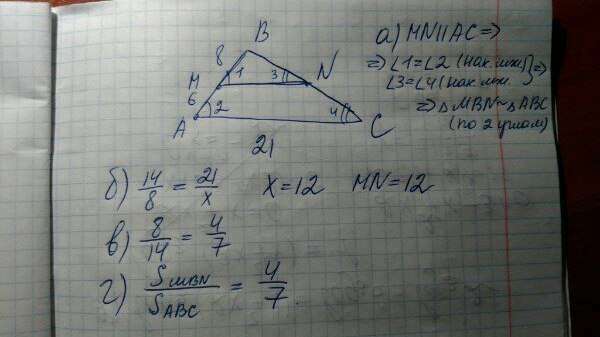 B
8
1
3
N
M
6
2
4
A
C
21
а) MN||AC =>
=> ∠1=∠2 (нак. леж.)
∠3=∠4 (нак. леж. } =>
=> △MBN ~ △ABC
(по 2 углам)
б) 14/8 = 21/x x=12 MN=12
в) 8/14 = 4/7
г) S MBN / S ABC = 4/7